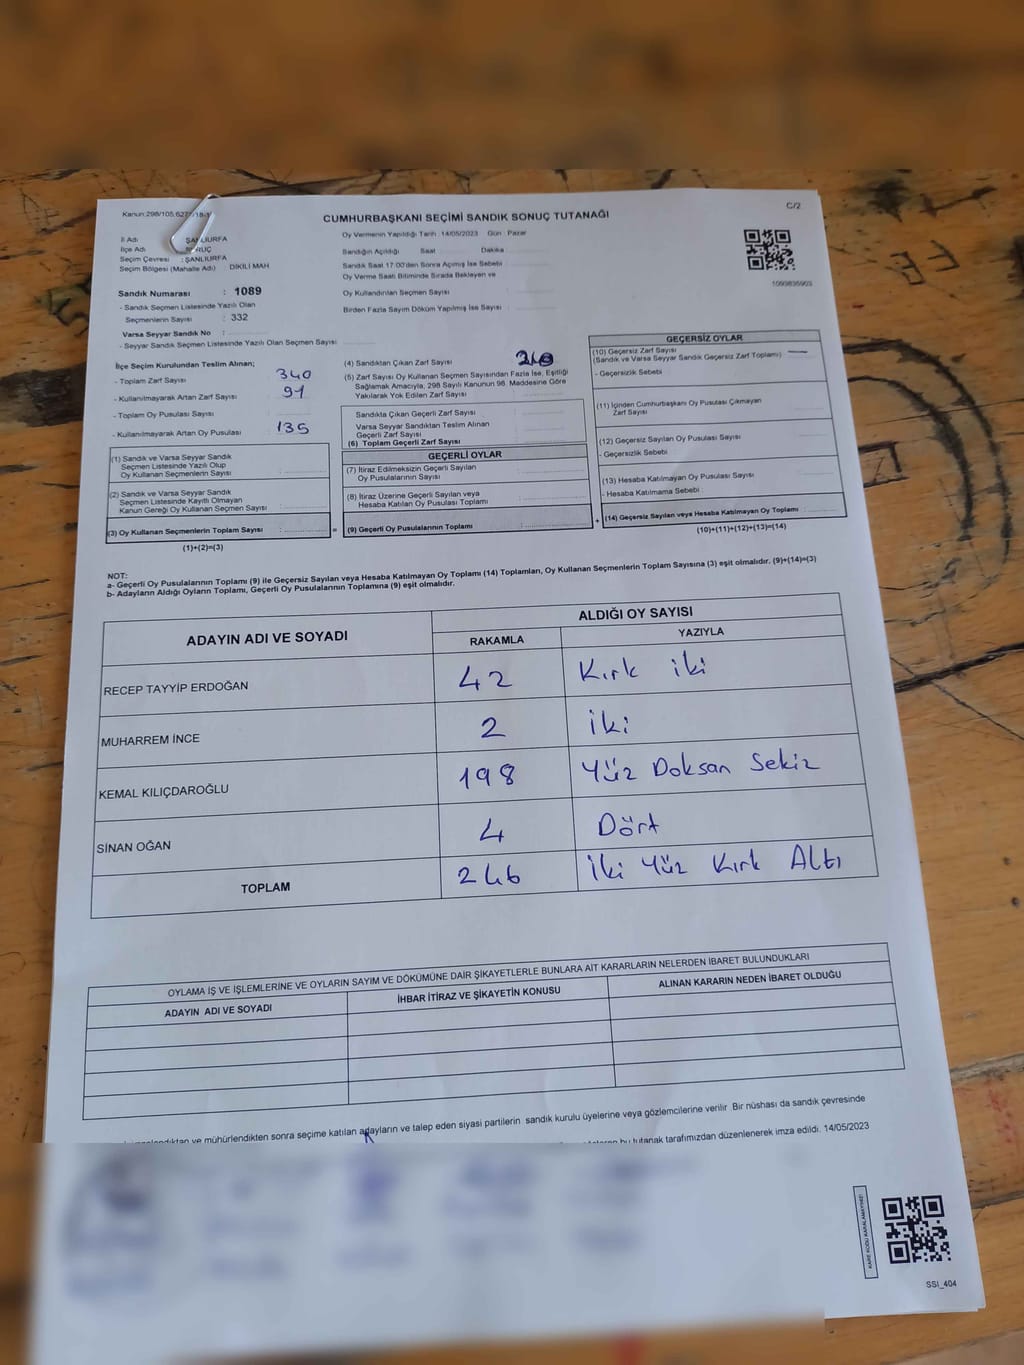 Kanun:298/105,627
C/2
CUMHURBAŞKANI SEÇİMİ SANDIK SONUÇ TUTANAĞI
İl Adı : ŞANLIURFA
İlçe Adı
Seçim Çevresi : ŞANLIURFA
Seçim Bölgesi (Mahalle Adı) : DİKİLİ MAH
Oy Vermenin Yapıldığı Tarih : 14/05/2023 Gün : Pazar
Sandığın Açıldığı Saat Dakika
Sandık Saat 17:00'den Sonra Açımış İse Sebebi
Oy Verme Saati Bitiminde Sırada Bekleyen ve
Oy Kullandırılan Seçmen Sayısı :
Birden Fazla Sayım Döküm Yapılmış İse Sayısı :
Sandık Numarası : 1089
- Sandık Seçmen Listesinde Yazılı Olan
Seçmenlerin Sayısı : 332
Varsa Seyyar Sandık No :
- Seyyar Sandık Seçmen Listesinde Yazılı Olan Seçmen Sayısı
İlçe Seçim Kurulundan Teslim Alınan;
- Toplam Zarf Sayısı 340
- Kullanılmayarak Artan Zarf Sayısı 91
- Toplam Oy Pusulası Sayısı
- Kullanılmayarak Artan Oy Pusulası 135
(1) Sandık ve Varsa Seyyar Sandık
Seçmen Listesinde Yazılı Olup
Oy Kullanan Seçmenlerin Sayısı
(2) Sandık ve Varsa Seyyar Sandık
Seçmen Listesinde Kayıtlı Olmayan
Kanun Gereği Oy Kullanan Seçmen Sayısı
(3) Oy Kullanan Seçmenlerin Toplam Sayısı :
(1)+(2)=(3)
=
(4) Sandıktan Çıkan Zarf Sayısı
(5) Zarf Sayısı Oy Kullanan Seçmen Sayısından Fazla İse, Eşitliği
Sağlamak Amacıyla, 298 Sayılı Kanunun 98. Maddesine Göre
Yakılarak Yok Edilen Zarf Sayısı
Sandıkta Çıkan Geçerli Zarf Sayısı
Varsa Seyyar Sandıktan Teslim Alınan
Geçerli Zarf Sayısı
(6) Toplam Geçerli Zarf Sayısı
GEÇERLİ OYLAR
(7) İtiraz Edilmeksizin Geçerli Sayılan
Oy Pusulalarının Sayısı
(8) İtiraz Üzerine Geçerli Sayılan veya
Hesaba Katılan Oy Pusulası Toplamı
(9) Geçerli Oy Pusulalarının Toplamı
+
GEÇERSİZ OYLAR
(10) Geçersiz Zarf Sayısı
(Sandık ve Varsa Seyyar Sandık Geçersiz Zarf Toplamı)
- Geçersizlik Sebebi
(11) İçinden Cumhurbaşkanı Oy Pusulası Çıkmayan
Zarf Sayısı
(12) Geçersiz Sayılan Oy Pusulası Sayısı
- Geçersizlik Sebebi
(13) Hesaba Katılmayan Oy Pusulası Sayısı
- Hesaba Katılmama Sebebi
(14) Geçersiz Sayılan veya Hesaba Katılmayan Oy Toplamı
(10)+(11)+(12)+(13)=(14)
NOT:
a- Geçerli Oy Pusulalarının Toplamı (9) ile Geçersiz Sayılan veya Hesaba Katılmayan Oy Toplamı (14) Toplamları, Oy Kullanan Seçmenlerin Toplam Sayısına (3) eşit olmalıdır. (9)+(14)=(3)
b- Adayların Aldığı Oyların Toplamı, Geçerli Oy Pusulalarının Toplamına (9) eşit olmalıdır.
ADAYIN ADI VE SOYADI
ALDIĞI OY SAYISI
RAKAMLA YAZIYLA
RECEP TAYYİP ERDOĞAN 42 Kırk iki
MUHARREM İNCE 2 iki
KEMAL KILIÇDAROĞLU 198 Yüz Doksan Sekiz
SİNAN OĞAN 4 Dört
TOPLAM 246 İki Yüz Kırk Altı
OYLAMA İŞ VE İŞLEMLERİNE VE OYLARIN SAYIM VE DÖKÜMÜNE DAİR ŞİKAYETLERLE BUNLARA AİT KARARLARIN NELERDEN İBARET BULUNDUKLARI
ADAYIN ADI VE SOYADI İHBAR İTİRAZ VE ŞİKAYETİN KONUSU ALINAN KARARIN NEDEN İBARET OLDUĞU
ve mühürlendikten sonra seçime katılan adayların ve talep eden siyasi partilerin sandık kurulu üyelerine veya gözlemcilerine verilir. Bir nüshası da sandık çevresinde
bu tutanak tarafımızdan düzenlenerek imza edildi. 14/05/2023
KARE KODU KARALAMAYINIZ!
SSI_404